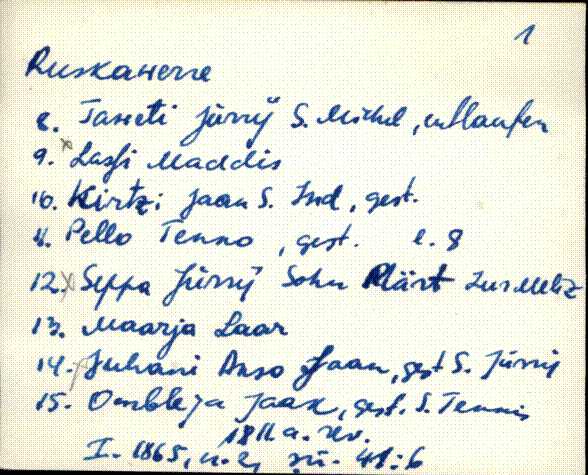 1
Ruskawerre
8. Taweti Jürrÿ S. Michel, entlaufen
9. Lassi Maddis
10. Kirtzi Jaan S. Ind, gest.
11. Pello Tenno, gest. l. 8
12. Seppa Jürrÿ Sohn Märt zur Miliz
13. Maarja Laar
14. Juhani Anso Jaan, gest S. Jürri
15. Ombleja Jaak, gest. S. Tennis
1811 a. rev.
I. 1865, n. 2, sü. 41. 6